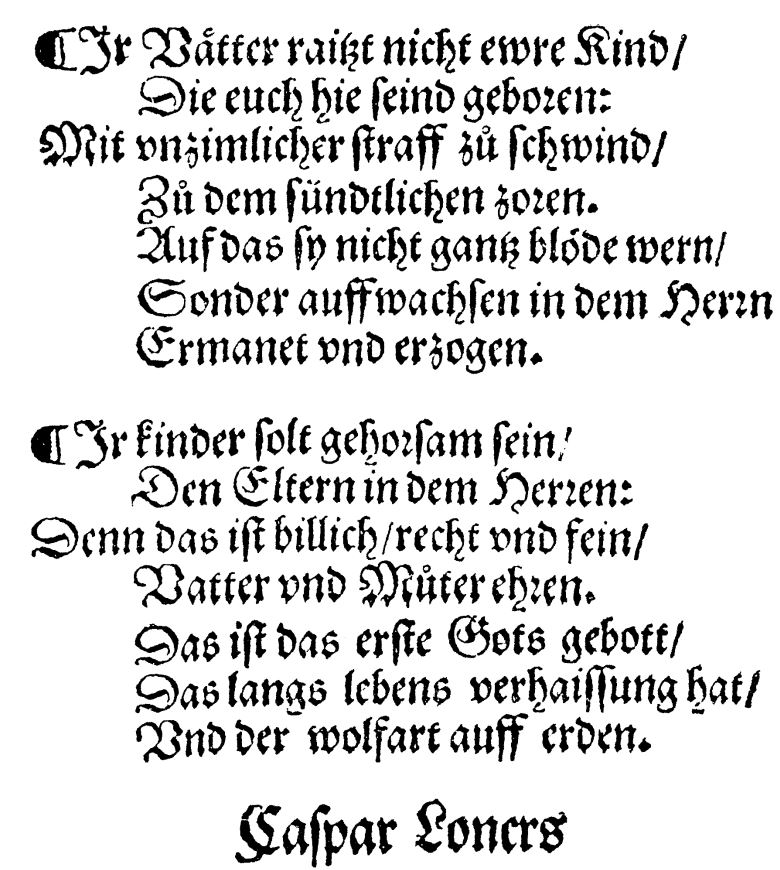 ¶Ir Vaͤtter raitzt nicht ewre Kind/
Die euch hie ſeind geboꝛen:
Mit vnzimlicher ſtraff zuͦ ſchwind/
Zuͦ dem ſündtlichen zoꝛen.
Auf das ſy nicht gantz bloͤde wern/
Sonder auffwachſen in dem Herꝛn
Ermanet vnd erzogen.
¶Ir kinder ſolt gehoꝛſam ſein/
Den Eltern in dem Herꝛen:
Denn das iſt billich/recht vnd fein/
Vatter vnd Muͦter ehꝛen.
Das iſt das erſte Gots gebott/
Das langs lebens verhaiſſung hat/
Vnd der wolfart auff erden.
Caſpar Loners